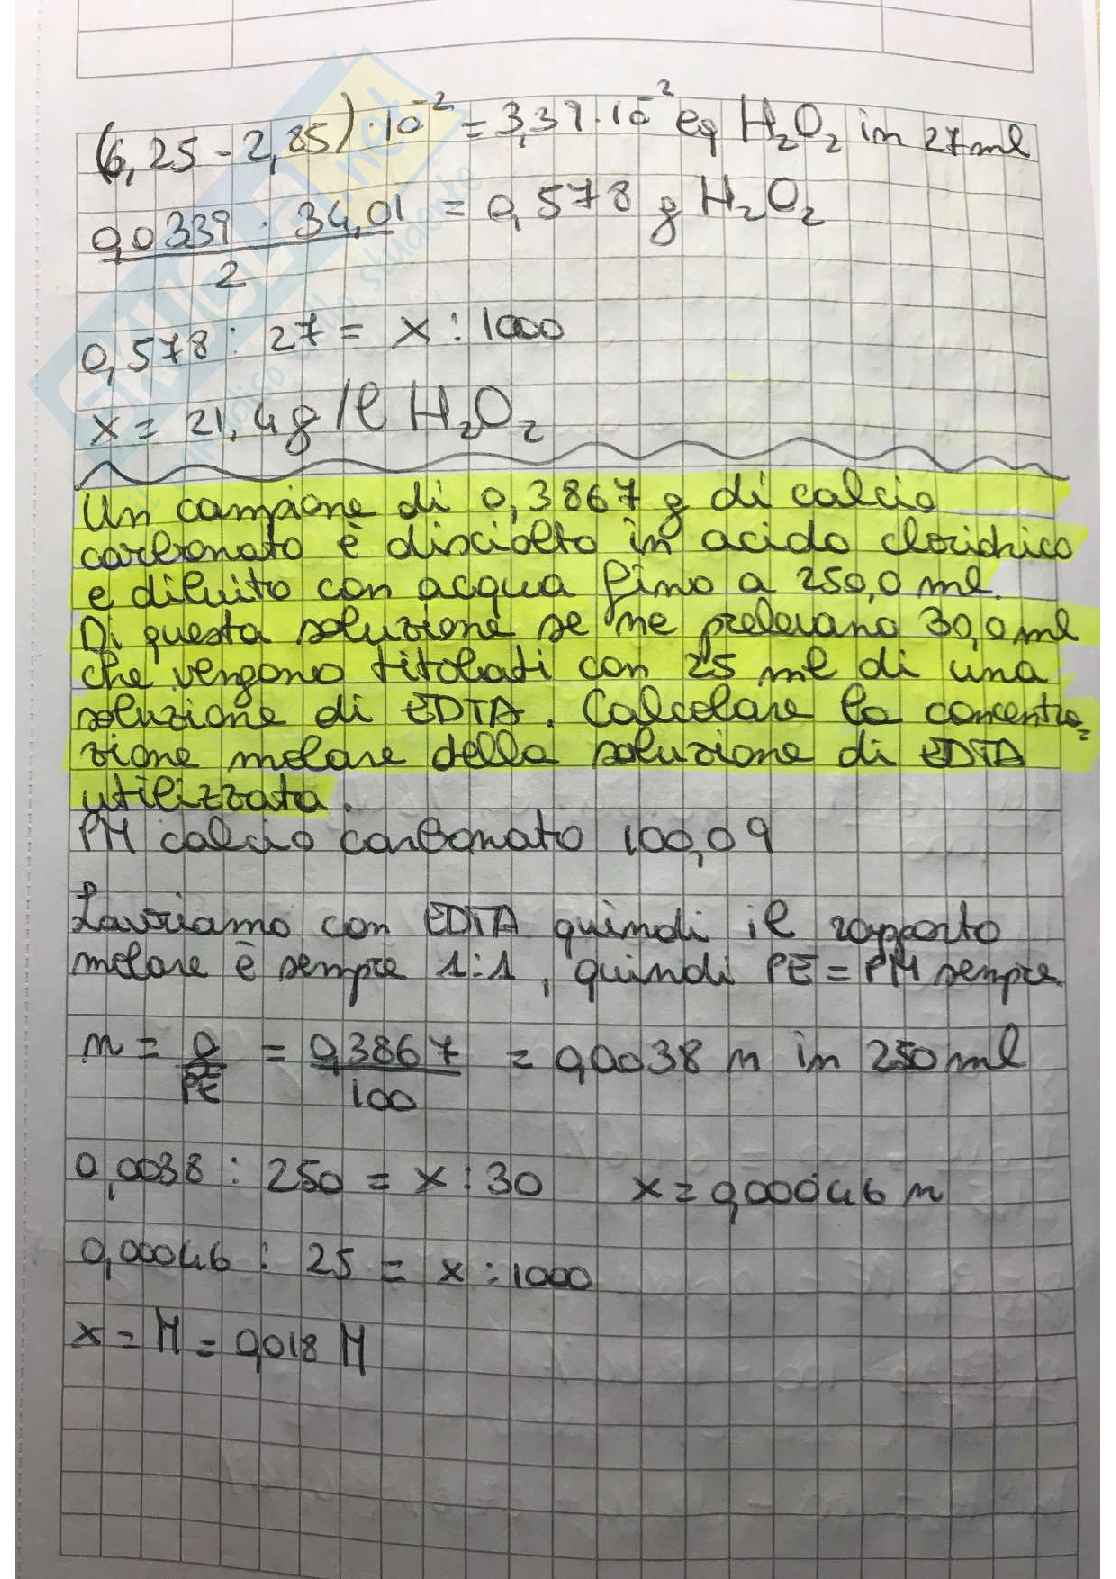 (6,25 - 2,85) · 10⁻² = 3,39 · 10⁻² eq H₂O₂ in 27 ml
0,0339 · 34,01 / 2 = 0,578 g H₂O₂
0,578 : 27 = x : 1000
x = 21,4 g/l H₂O₂
Un campione di 0,3867 g di calcio
carbonato è disciolto in acido cloridrico
e diluito con acqua fino a 250,0 ml.
Di questa soluzione se ne prelevano 30,0 ml
che vengono titolati con 25 ml di una
soluzione di EDTA. Calcolare la concentra
zione molare della soluzione di EDTA
utilizzata.
PM calcio carbonato 100,09
Lavoriamo con EDTA quindi il rapporto
molare è sempre 1:1, quindi PE = PM sempre
n = g/PE = 0,3867/100 = 0,0038 n in 250 ml
0,0038 : 250 = x : 30 x = 0,00046 n
0,00046 : 25 = x : 1000
x = M = 0,018 M